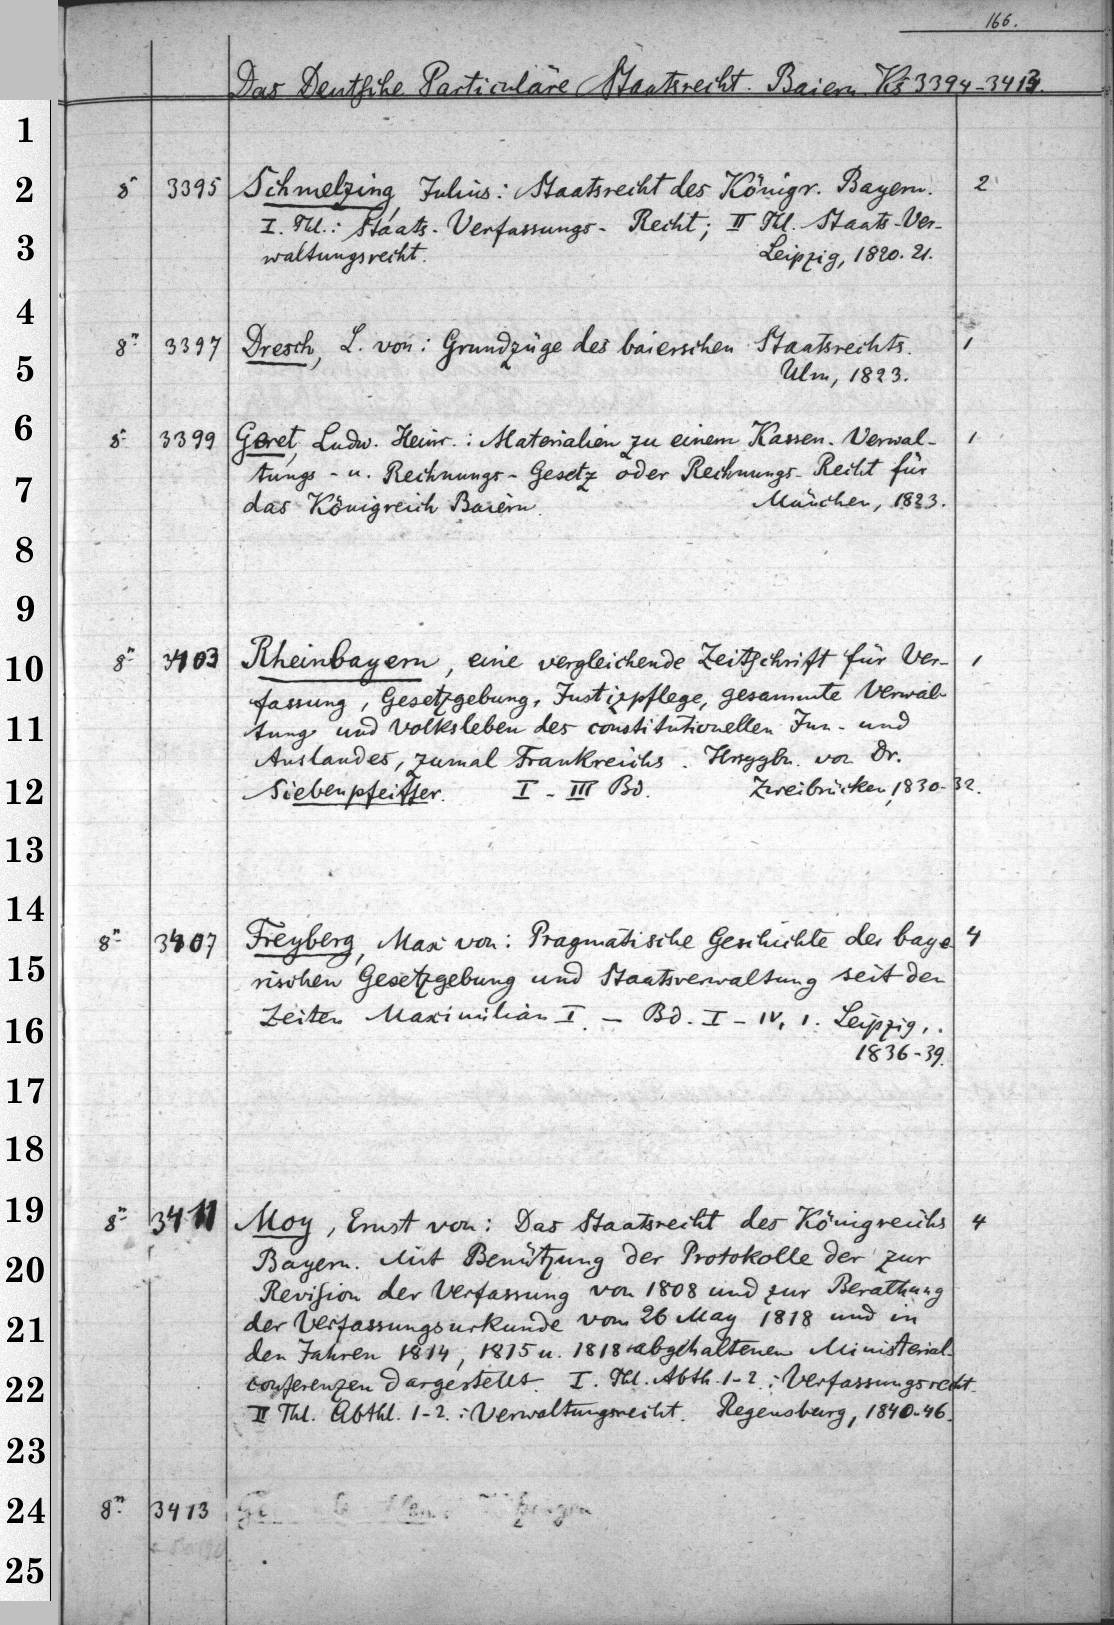 166.
Das Deutsche Particuläre Staatsrecht. Baiern. Ks 3394-3413.
1
2
3
4
5
6
7
8
9
10
11
12
13
14
15
16
17
18
19
20
21
22
23
24
25
8° 3395 Schmelzing, Julius: Staatsrecht des Königr. Bayern. 2
I. Thl.: Staats-Verfassungs-Recht; II Thl. Staats-Ver-
waltungsrecht. Leipzig, 1820.21.
8° 3397 Dresch, L. von: Grundzüge des baierschen Staatsrechts. 1
Ulm, 1823.
8° 3399 Geret, Ludw. Heinr.: Materialien zu einem Kassen-Verwal- 1
tungs- u. Rechnungs-Gesetz oder Rechnungs-Recht für
das Königreich Baiern. München, 1823.
8° 3403 Rheinbayern, eine vergleichende Zeitschrift für Ver- 1
fassung, Gesetzgebung, Justizpflege, gesammte Verwal-
tung und Volksleben des constitutionellen Inn- und
Auslandes, zumal Frankreichs. Hrsggbn. von Dr.
Siebenpfeiffer. I - III Bd. Zweibrücken, 1830-32.
8° 3407 Freyberg, Max von: Pragmatische Geschichte der baye- 4
rischen Gesetzgebung und Staatsverwaltung seit den
Zeiten Maximilian I. - Bd. I - IV, 1. Leipzig,
1836-39.
8° 3411 Moy, Ernst von: Das Staatsrecht des Königreichs 4
Bayern. Mit Benützung der Protokolle der zur
Revision der Verfassung von 1808 und zur Berathung
der Verfassungsurkunde vom 26 May 1818 und in
den Jahren 1814, 1815 u. 1818 abgehaltenen Ministerial-
conferenzen dargestellt. I. Thl. Abth. 1-2.: Verfassungsrecht.
II Thl. Abthl. 1-2.: Verwaltungsrecht. Regensburg, 1840-46.
8° 3413